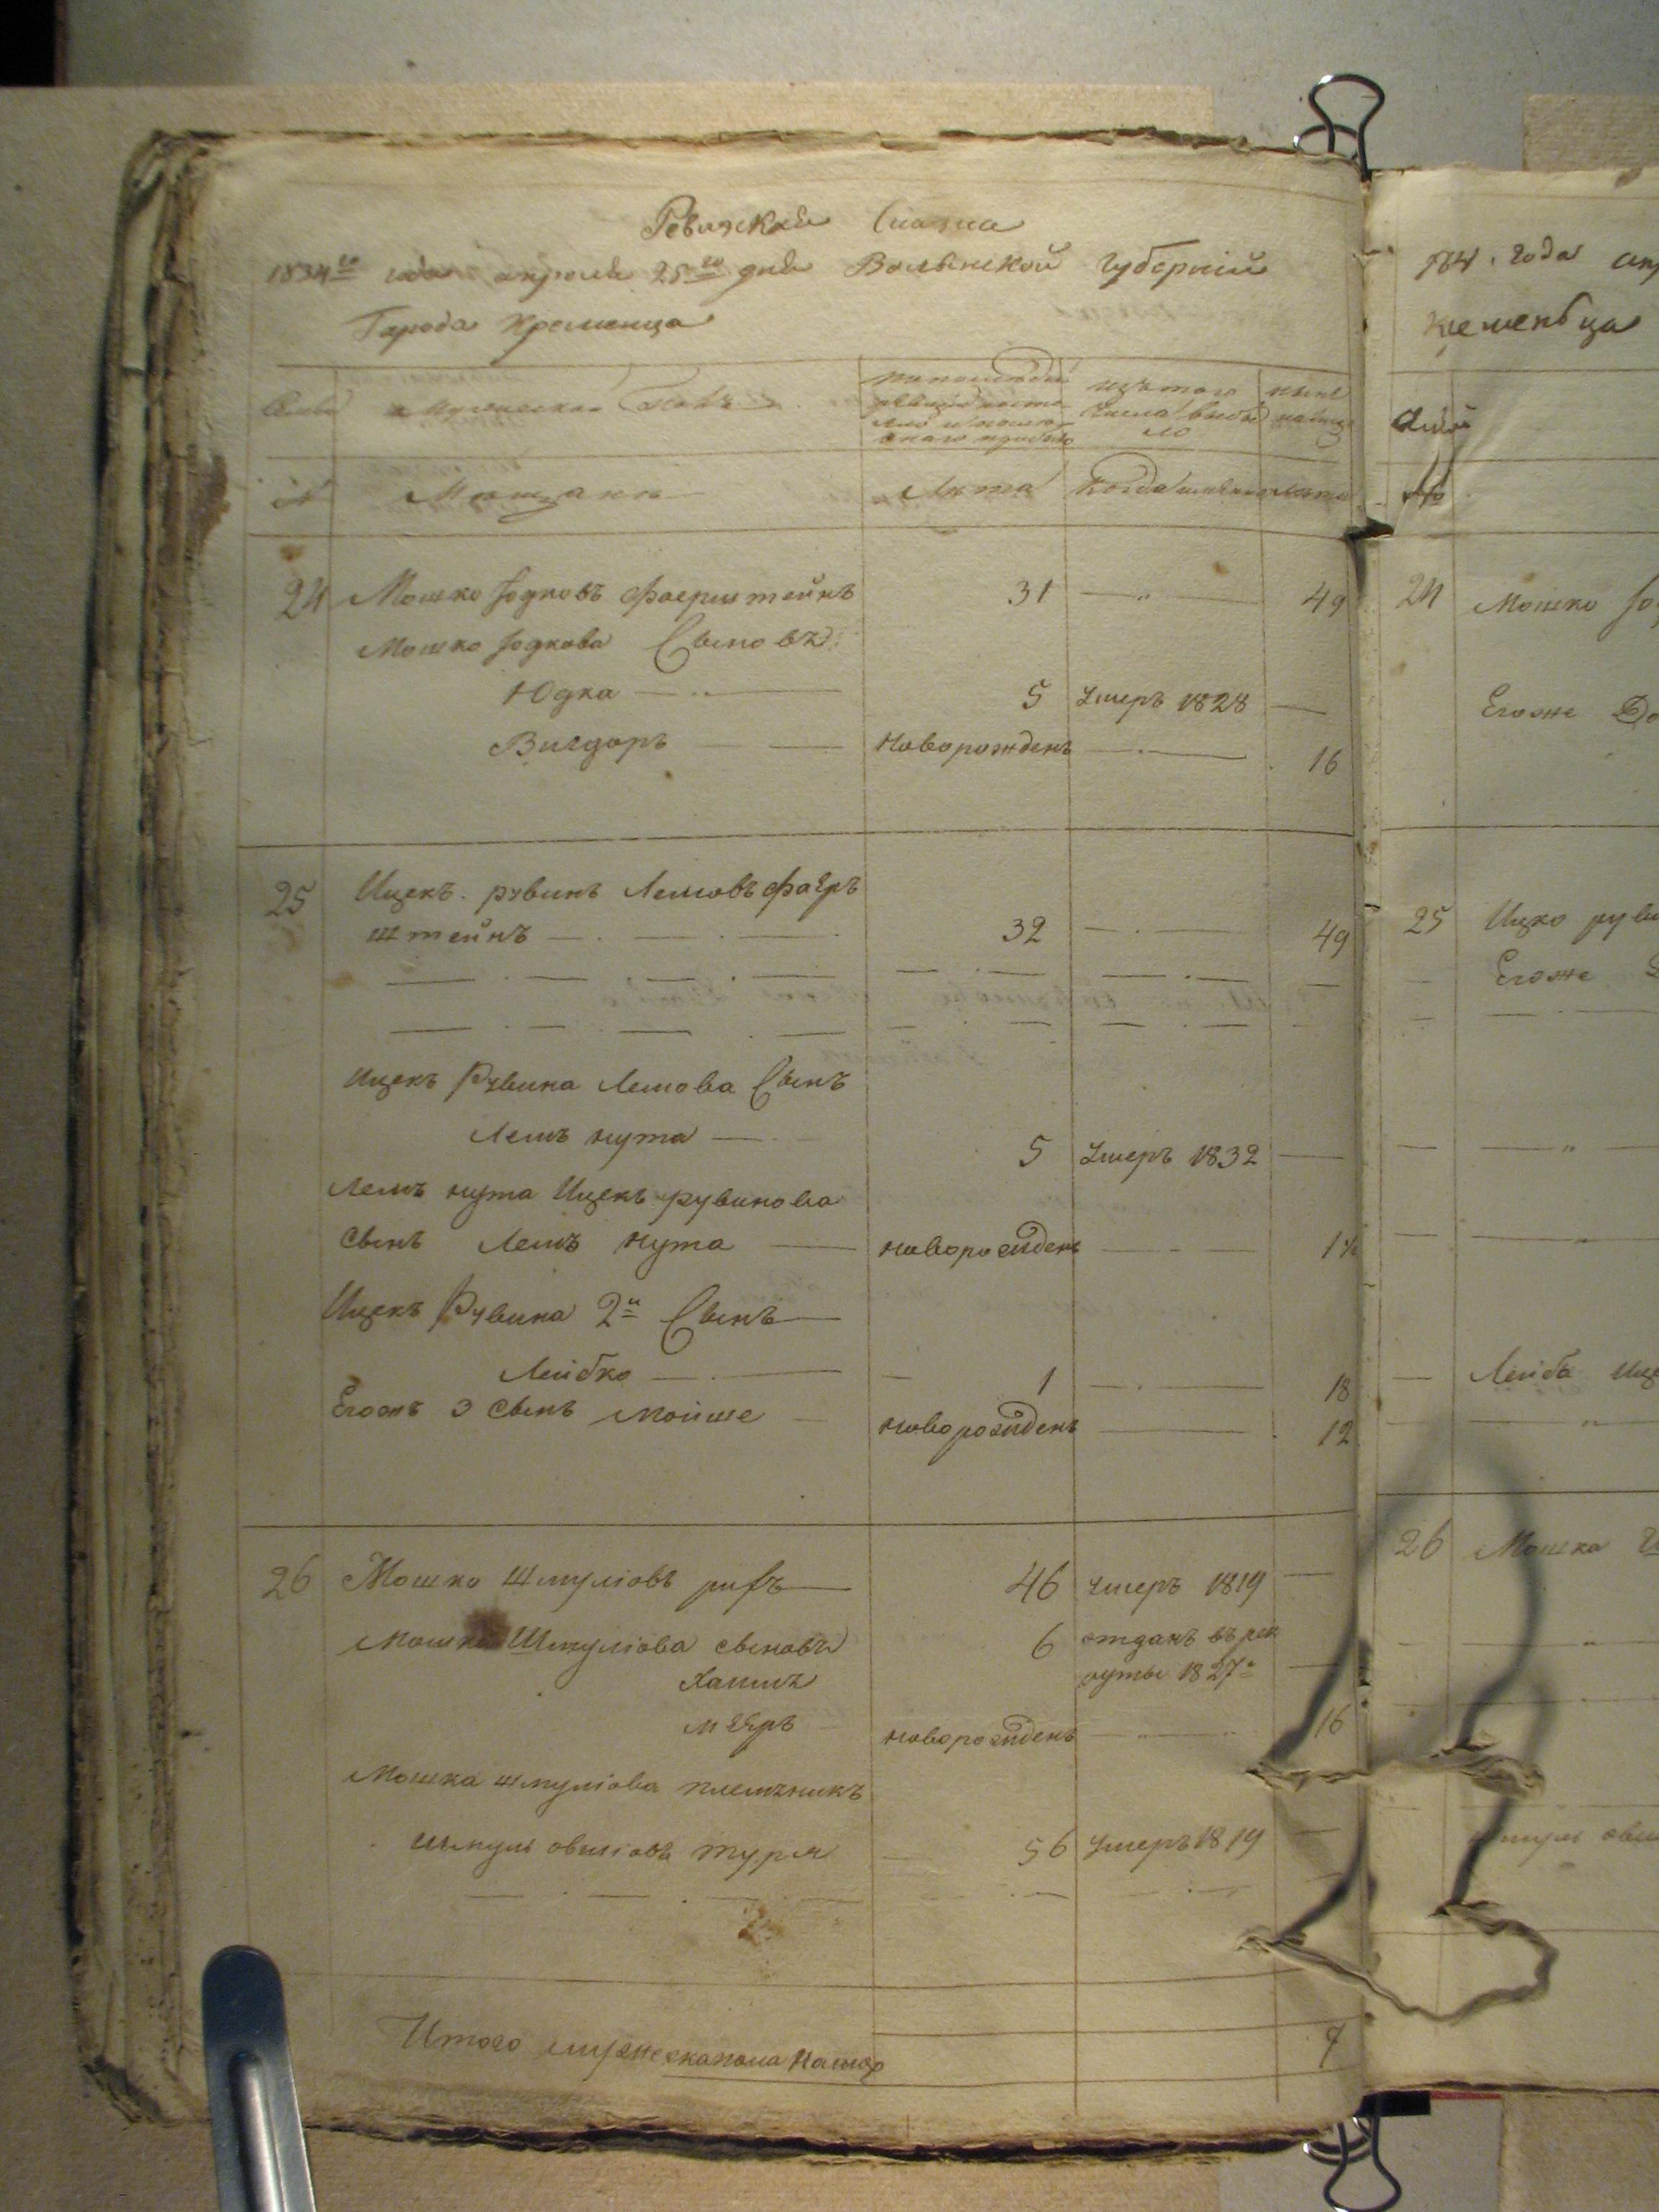 Ревизская Сказка
1834го года апреля 25го дня Волынской Губернiи
Города Кременца
Семьи Мужеской Полъ
изъ того числа выбыло
ныне налицо
№ Мещане Лета Когда именно Лета
24 Мошко Іодковъ Фаерштейнъ 31 49
Мошко Іодкова Сыновъя
Юдка 5 Умеръ 1828
Вигдоръ Новорожденъ 16
25 Ицекъ рувинъ Лемовъ Фаеръ
штейнъ 32 49
Ицекъ Рувина Лемова Сынъ
Лемъ нута 5 Умеръ 1832
Лемъ нута Ицекъ рувинова
Сынъ Лемъ Нута новорожденъ
Ицекъ Рувина 2й Сынъ
Лейбко 1 18
Егожъ 3 Сынъ Мойше новорожденъ 12
26 Мошко Шмуліовъ 46 умеръ 1819
Мошка Шмуліова сыновъя 6 отданъ въ рек
Хаимъ руты 1827
Мееръ новорожденъ 16
Мошка шмуліова племеникъ
Шмуль овшіовъ 56 Умеръ 1819
Итого мужеска пола налицо 7
1834 года апр
Кременца
Семьи
№
24 Мошко Іо
Егоже До
25 Ицко руви
Егоже
Лейба Ице
26 Мошка